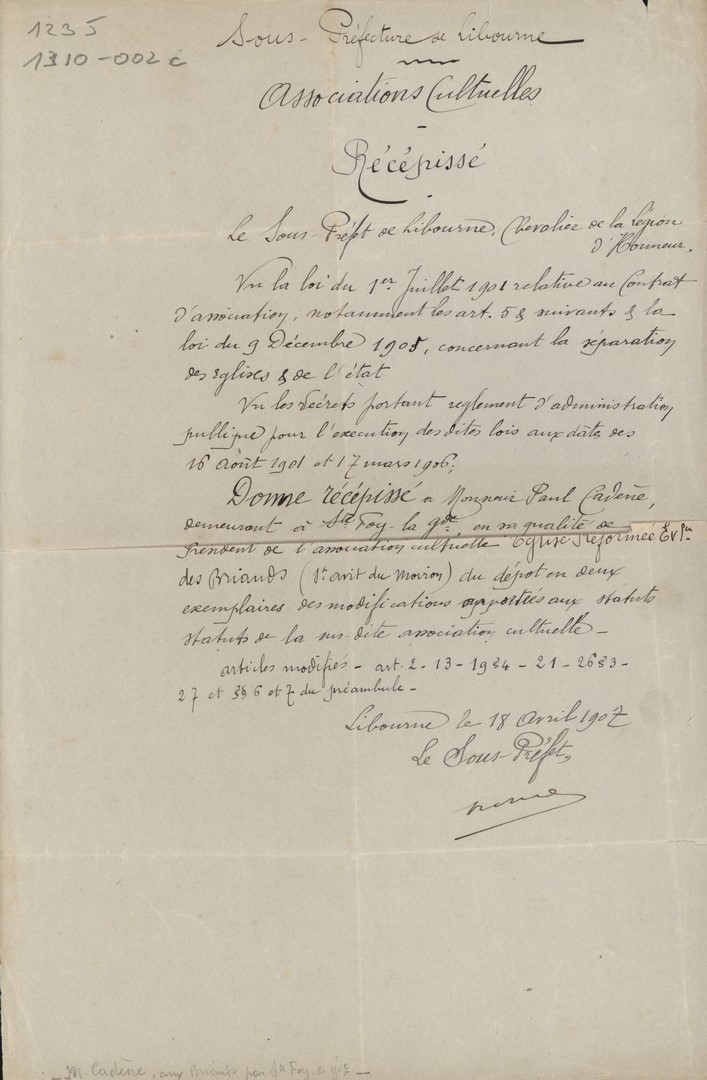 1235
1310-002 c
Sous-Préfecture de Libourne
Associations Cultuelles
Récépissé
Le Sous-Préfet de Libourne, Chevalier de la Légion
d'Honneur.
Vu la loi du 1er Juillet 1901 relative au Contrat
d'association, notamment les art. 5 & suivants & la
loi du 9 Décembre 1905, concernant la séparation
des Eglises & de l'état
Vu les décrets portant reglement d'administration
publique pour l'execution des dites lois aux dates des
16 Août 1901 et 17 mars 1906;
Donne récépissé a Monsieur Paul Cadène,
demeurant à Ste Foy-la-gde, en sa qualité de
President de l'association cultuelle Eglise Réformée Evque
des Briands (St avit du Moiron) du dépot en deux
exemplaires des modifications apportées aux statuts
statuts de la sus-dite association cultuelle -
articles modifiés - art. 2 - 13 - 19§4 - 21 - 26§3 -
27 et §§ 6 et 7 du préambule -
Libourne le 18 Avril 1907
Le Sous-Préfet,
- M. Cadène, aux Briands par Ste Foy-la-gde -